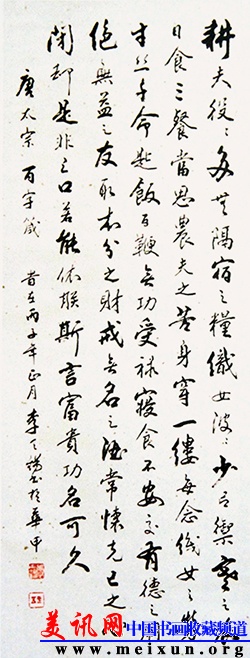 耕夫役々多無隔宿之糧織女波々少有禦寒之衣
日食三餐當思農夫之苦身穿一縷每念織女之勞
寸丝千命匙飯百鞭無功受禄寢食不安交有德之朋
絶無益之友取本分之財戒無名之酒常懷克己之心
閉却是非之口若能依朕斯言富貴功名可久
唐太宗百字箴 丙子年正月李書於華中
美讯网 中国书画收藏频道
www.meixun.org